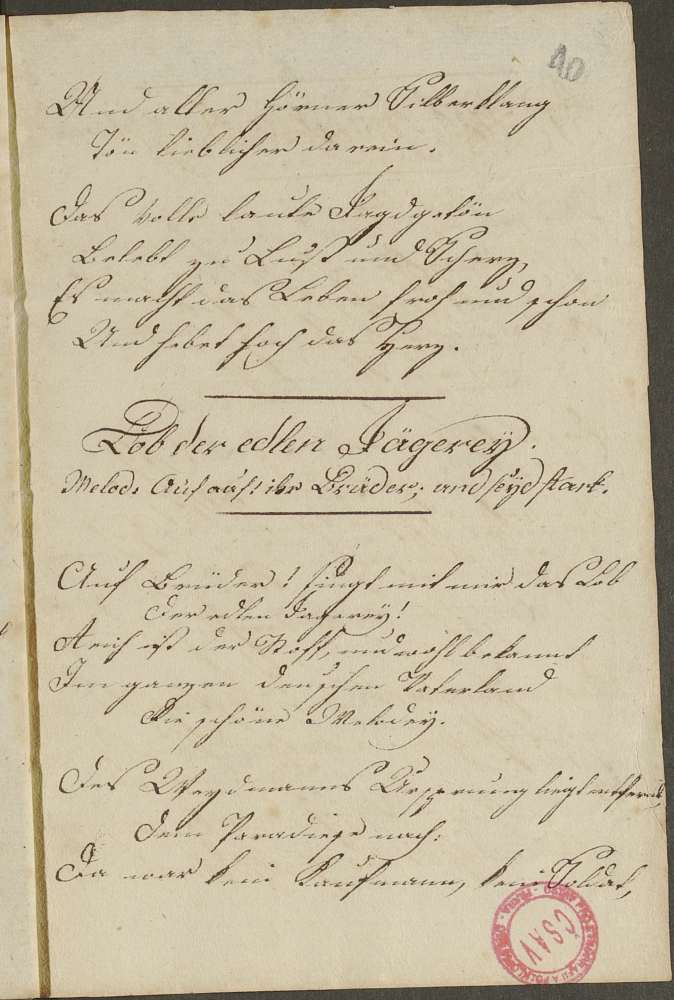 40
Und aller Hörner Silberklang
Tön lieblicher darein.
Das volle laute Jagdgetön
Belebt zu Lust und Scherz,
Es macht das Leben froh und schön
Und hebet hoch das Herz.
Lob der edlen Jägerey.
Melod: Auf auf! ihr Brüder, und seyd stark.
Auf Brüder! singt mit mir das Lob
Der edlen Jagerey!
Reich ist der Stoff, und wohl bekannt
Im ganzen deutschen Vaterland
Die schöne Melodey.
Des Weydmanns Ursprung liegt entfernt
Dem Paradiese nach:
Da war kein Kaufmann, kein Soldat,
ČSAV